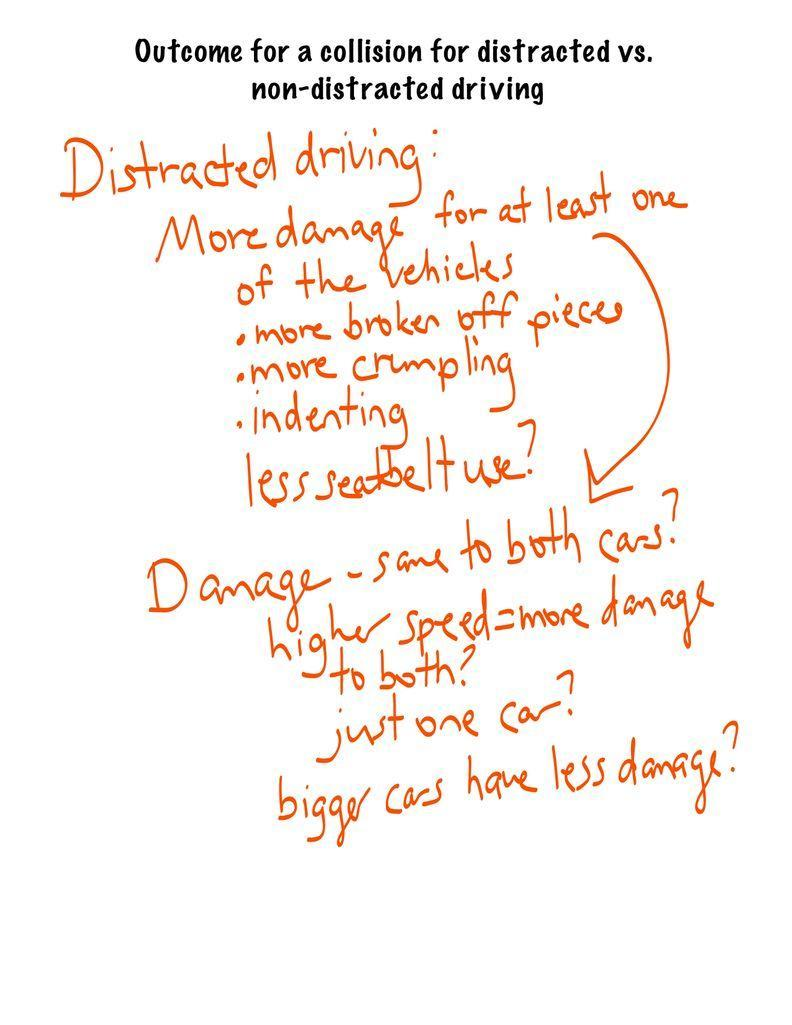 Outcome for a collision for distracted vs.
non-distracted driving
Distracted driving:
More damage for at least one
of the vehicles
• more broken off pieces
• more crumpling
• indenting
less seatbelt use?
Damage - same to both cars?
higher speed = more damage
to both?
just one car?
bigger cars have less damage?